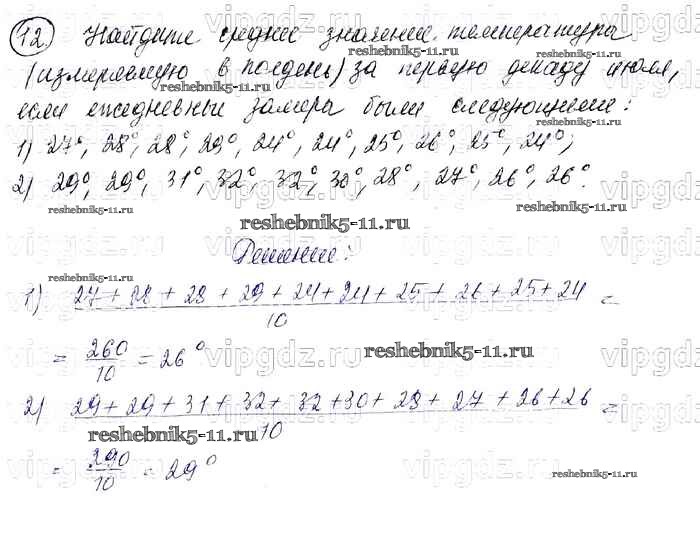 12. Найдите среднее значение температуры
(измеряемую в полдень) за первую декаду июля,
если ежедневные замеры были следующими:
1) 27°, 28°, 28°, 29°, 24°, 24°, 25°, 26°, 25°, 24°;
2) 29°, 29°, 31°, 32°, 32°, 30°, 28°, 27°, 26°, 26°.
reshebnik5-11.ru
Решение:
1) 27 + 28 + 28 + 29 + 24 + 24 + 25 + 26 + 25 + 24 =
10
= 260/10 = 26°
reshebnik5-11.ru
2) 29 + 29 + 31 + 32 + 32 + 30 + 28 + 27 + 26 + 26 =
reshebnik5-11.ru
10
= 290/10 = 29°
reshebnik5-11.ru
vipgdz.ru